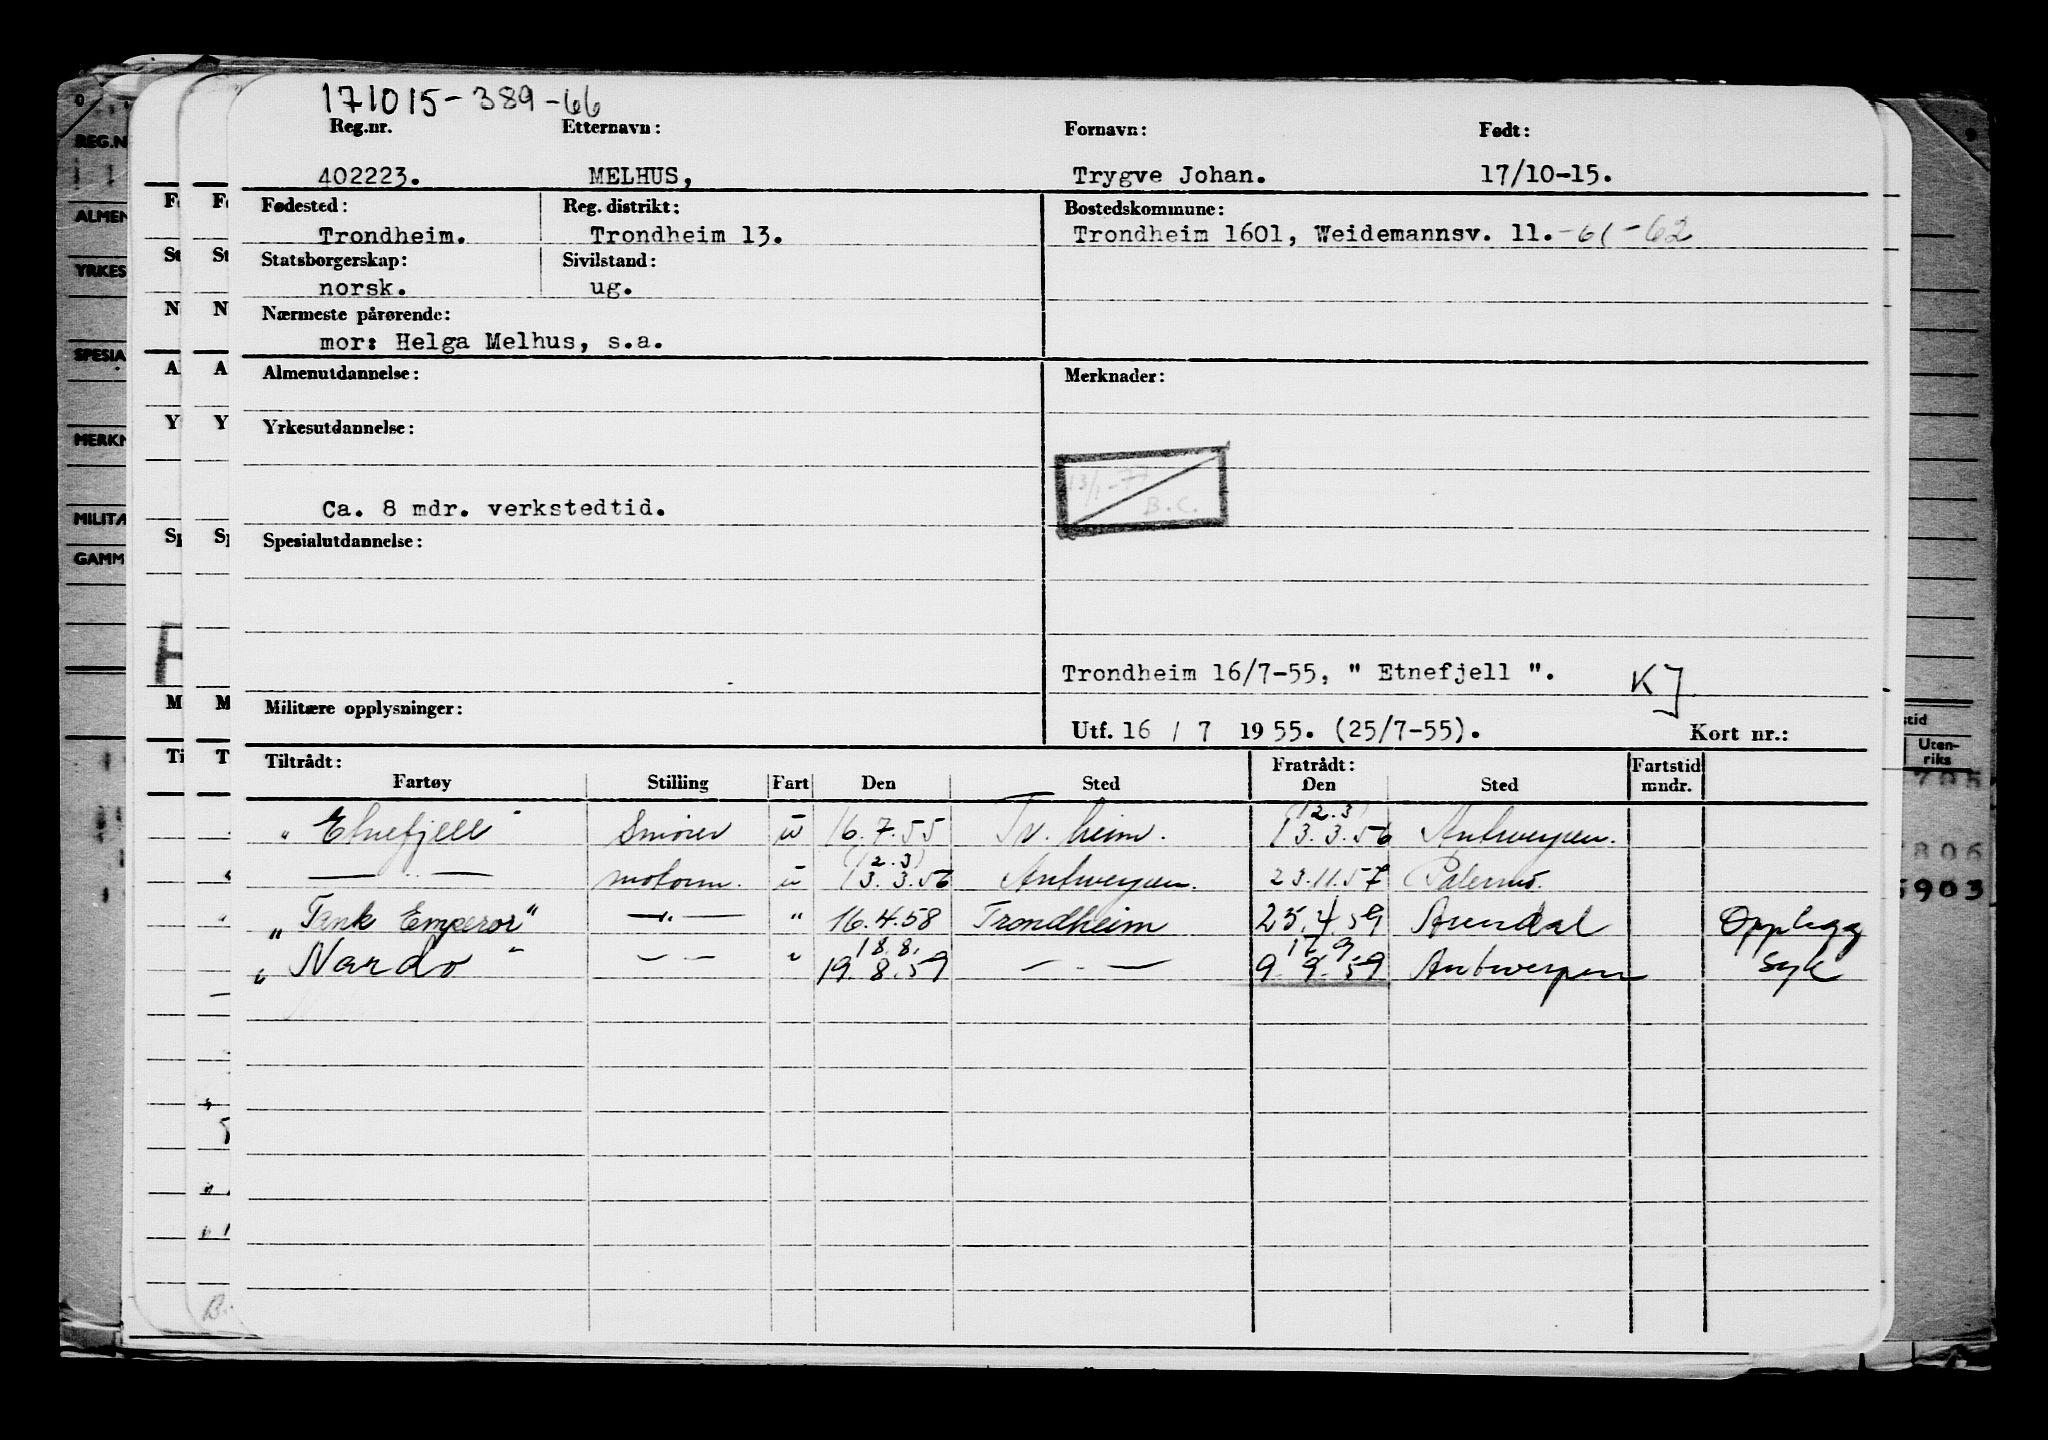 171015-389-66
Reg.nr. Etternavn: Fornavn: Født:
402223. MELHUS, Trygve Johan. 17/10-15.
Fødested: Reg. distrikt: Bostedskommune:
Trondheim. Trondheim 13. Trondheim 1601, Weidemannsv. 11. -61-62
Statsborgerskap: Sivilstand:
norsk. ug.
Nærmeste pårørende:
mor: Helga Melhus, s.a.
Almenutdannelse: Merknader:
Yrkesutdannelse:
13/1-77
B.C.
Ca. 8 mdr. verkstedtid.
Spesialutdannelse:
Trondheim 16/7-55, " Etnefjell ". KJ
Militære opplysninger:
Utf. 16 / 7 1955. (25/7-55). Kort nr.:
Tiltrådt: Fratrådt: Fartstid
Fartøy Stilling Fart Den Sted Den Sted mndr.
(12.3)
"Etnefjell" Smører u 16.7.55 Tr.heim. 13.3.56 Antwerpen.
(12.3)
— " — motorm. u 13.3.56 Antwerpen. 23.11.57 Palermo.
"Tank Emperor" — " — " 16.4.58 Trondheim 25.4.59 Arendal Opplegg
18.8. 17 9
"Nardo" — " — " 19.8.59 — " — 9.9.59 Antwerpen syk
REG.N
ALMEN
YRKES
SPESIA
MERKN
MILITA
GAMM
Uten-
riks
903